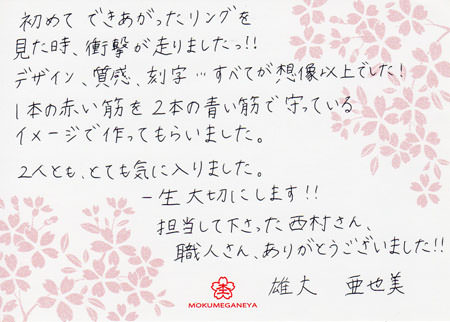 初めて できあがったリングを
見た時、衝撃が走りましたっ!!
デザイン、質感、刻字…すべてが想像以上でした!
1本の赤い筋を2本の青い筋で守っている
イメージで作ってもらいました。
2人とも、とても気に入りました。
一生大切にします!!
担当して下さった西村さん、
職人さん、ありがとうございました!!
雄大 亜也美
MOKUMEGANEYA